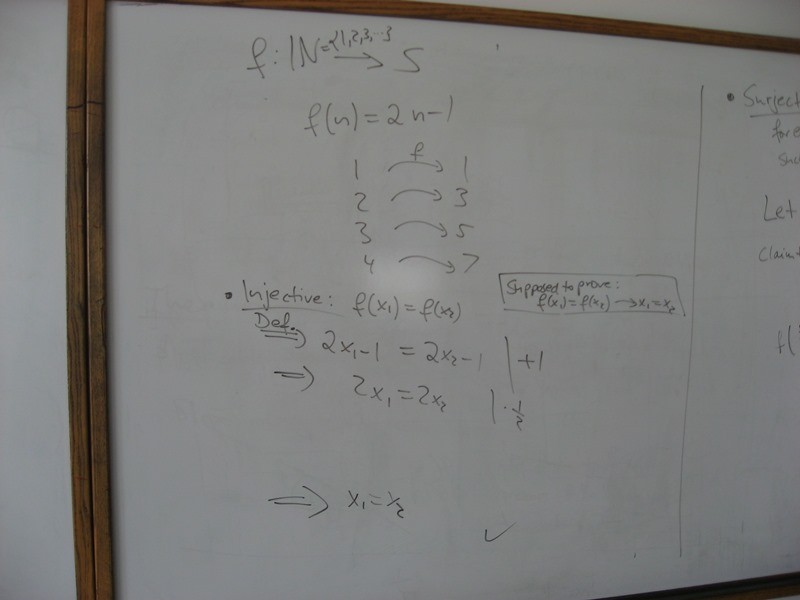 f: ℕ={1,2,3,...} → S
f(n) = 2n-1
f
1 → 1
2 → 3
3 → 5
4 → 7
• Injective: f(x₁) = f(x₂)
Supposed to prove:
f(x₁) = f(x₂) → x₁ = x₂
Def.
⇒ 2x₁-1 = 2x₂-1 | +1
⇒ 2x₁ = 2x₂ | · 1/2
⇒ x₁ = x₂
✓
• Surject
fore
suc
Let
Claim
f(